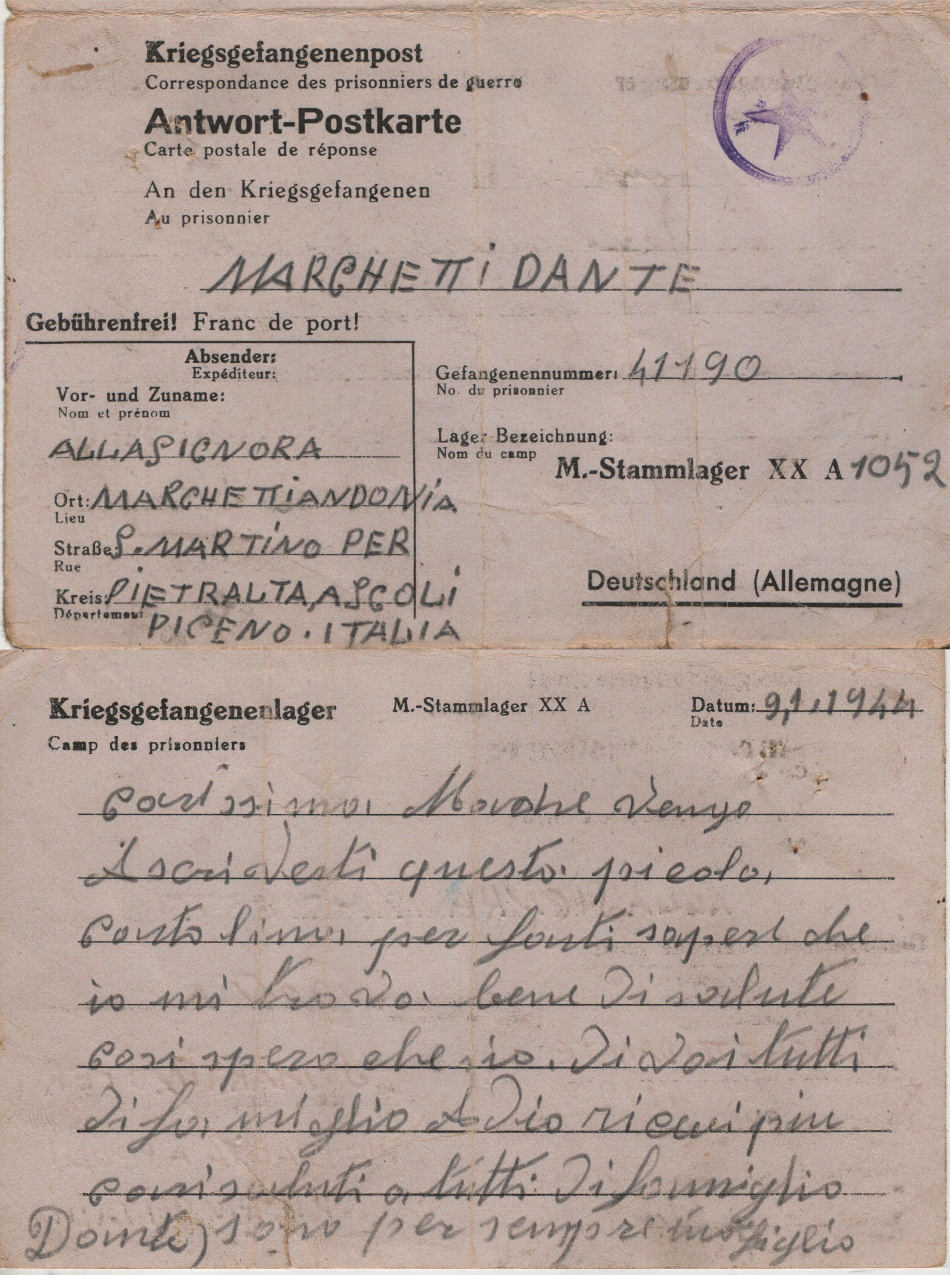 Kriegsgefangenenpost
Correspondance des prisonniers de guerre
Antwort-Postkarte
Carte postale de réponse
An den Kriegsgefangenen
Au prisonnier
MARCHETTI DANTE
Gebührenfrei! Franc de port!
Absender:
Expéditeur:
Vor- und Zuname:
Nom et prénom
ALLA SIGNORA
Ort: MARCHETTI ANDONIA
Lieu
Straße: S. MARTINO PER
Rue
Kreis: PIETRALTA, ASCOLI
Département
PICENO. ITALIA
Gefangenennummer: 41190
No. du prisonnier
Lager-Bezeichnung:
Nom du camp
M.-Stammlager XX A 1052
Deutschland (Allemagne)
Kriegsgefangenenlager M.-Stammlager XX A Datum: 9,1,1944
Camp des prisonniers Date
carissima Madre vengo
A scriverti questa picola
cartolina per farti sapere che
io mi trova bene di salute
cosi spero che di voi tutti
di famiglia A Dio ricevi piu
cari saluti a tutti di famiglia
Dante) sono per sempre tuo figlio